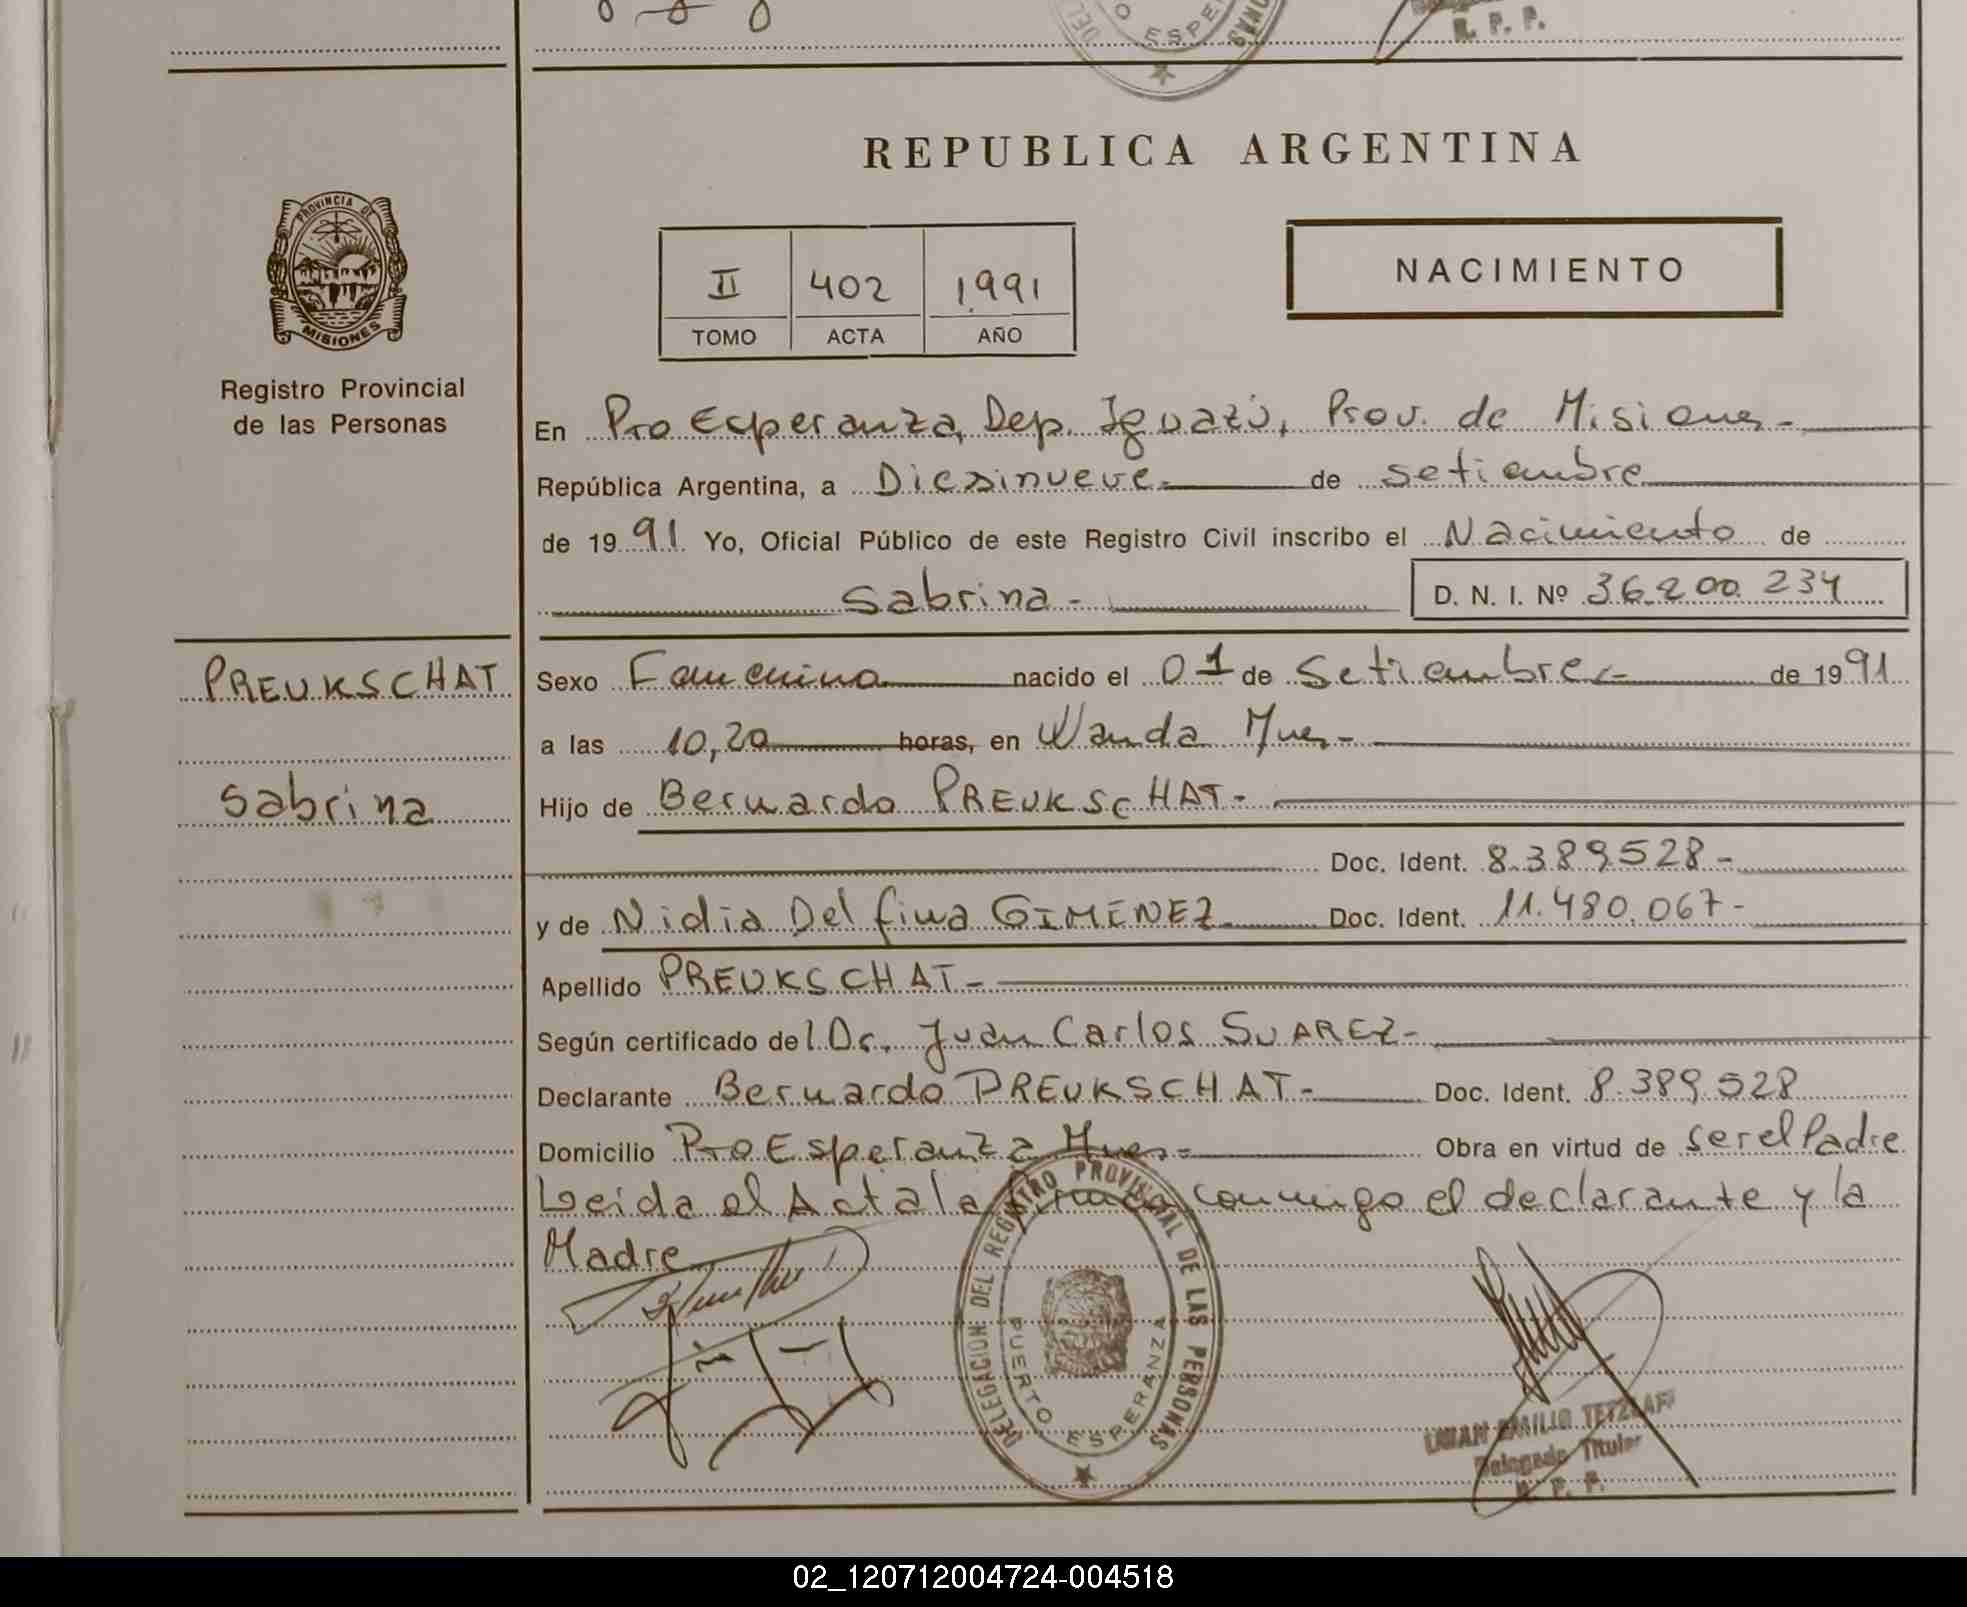 R. P. P.
ESPE
REPUBLICA ARGENTINA
PROVINCIA DE
MISIONES
Registro Provincial
de las Personas
II 402 1991
TOMO ACTA AÑO
NACIMIENTO
En Pto Esperanza, Dep. Iguazú, Prov. de Misiones-
República Argentina, a Diesinueve- de setiembre
de 1991 Yo, Oficial Público de este Registro Civil inscribo el Nacimiento de
Sabrina- D. N. I. Nº 36.200.234
PREUKSCHAT
Sabrina
Sexo Femenino nacido el 01 de Setiembre- de 1991
a las 10,20 horas, en Wanda Mnes-
Hijo de Bernardo PREUKSCHAT-
Doc. Ident. 8.389.528-
y de Nidia Delfina GIMENEZ Doc. Ident. 11.480.067-
Apellido PREUKSCHAT-
Según certificado del Dr. Juan Carlos SUAREZ-
Declarante Bernardo PREUKSCHAT- Doc. Ident. 8.389.528
Domicilio Pto Esperanza Mnes- Obra en virtud de ser el Padre
Leida el Acta la firman conmigo el declarante y la
Madre
DELEGACION DEL REGISTRO PROVINCIAL DE LAS PERSONAS
PUERTO ESPERANZA
EMILIO TETZLAFF
Delegado Titular
R. P. P.
02_120712004724-004518